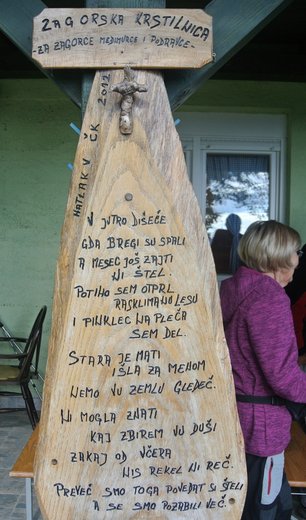 ZAGORSKA KRSTILNICA
-ZA ZAGORCE MEĐIMURCE I PODRAVCE-
MATLAK V ČK 2012
V JUTRO DIŠEČE
GDA BREGI SU SPALI
A MESEC JOŠ ZAJTI
NI ŠTEL.
POTIHO SEM OTPRL
RASKLIMANO LESU
I PINKLEC NA PLEČA
SEM DEL.
STARA JE MATI
IŠLA ZA MENOM
NEMO VU ZEMLU GLEDEČ.
NI MOGLA ZNATI
KAJ ZBIREM VU DUŠI
ZAKAJ OD VČERA
NIS REKEL NI REČ.
PREVEČ SMO TOGA POVEDAT SI ŠTELI
A SE SMO POZABILI VEČ.